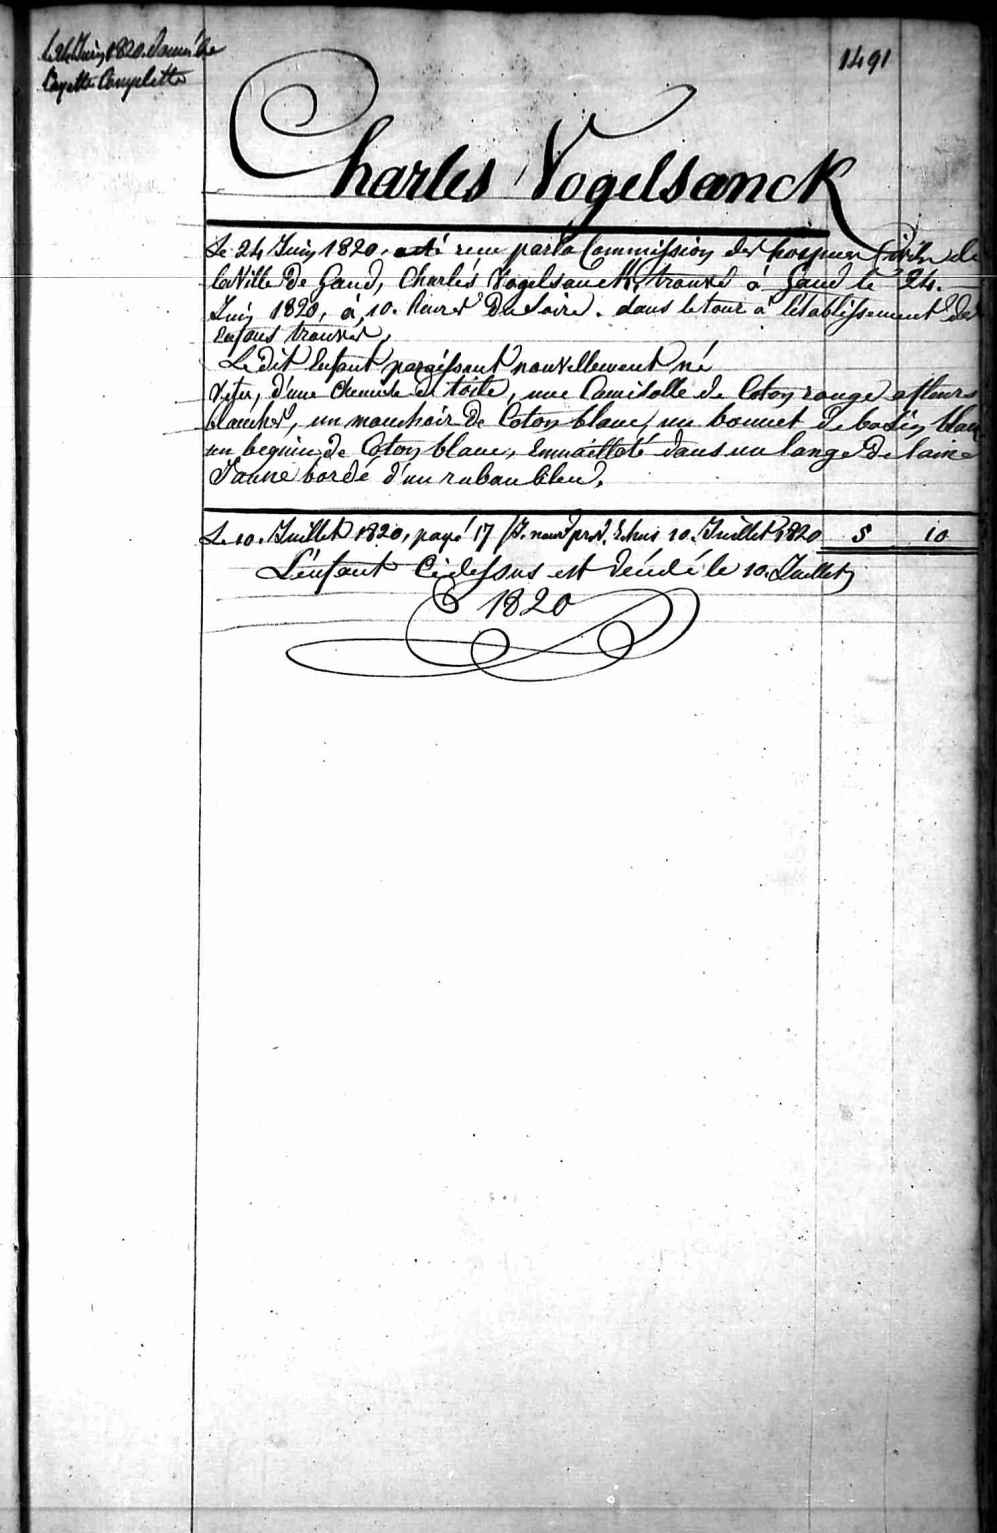 Le 24 Juin 1820. donné la
Layette Complette
1491
Charles Vogelsanck
Le 24 Juin 1820, a été reçu par la Commission des hospices Civils de
la Ville de Gand, Charles Vogelsanck, trouvé à Gand le 24.
Juin 1820, à 10. heures du Soire. dans le tour à l'établissement des
enfans trouvés,
Le dit Enfant paraissant nouvellement né
Vetu, d'une Chemise de toile, une Camisolle de Coton rouge a fleurs
blanches, un mouchoir de Coton blanc, un bonnet de basin blanc
un beguin de Coton blanc, Emmailloté dans un lange de laine
Jaune bordé d'un ruban bleu.
Le 10. Juillet 1820, payé 17 Echus 10. Juillet 1820 5 10
L'enfant Ci dessus est décédé le 10. Juillet
1820